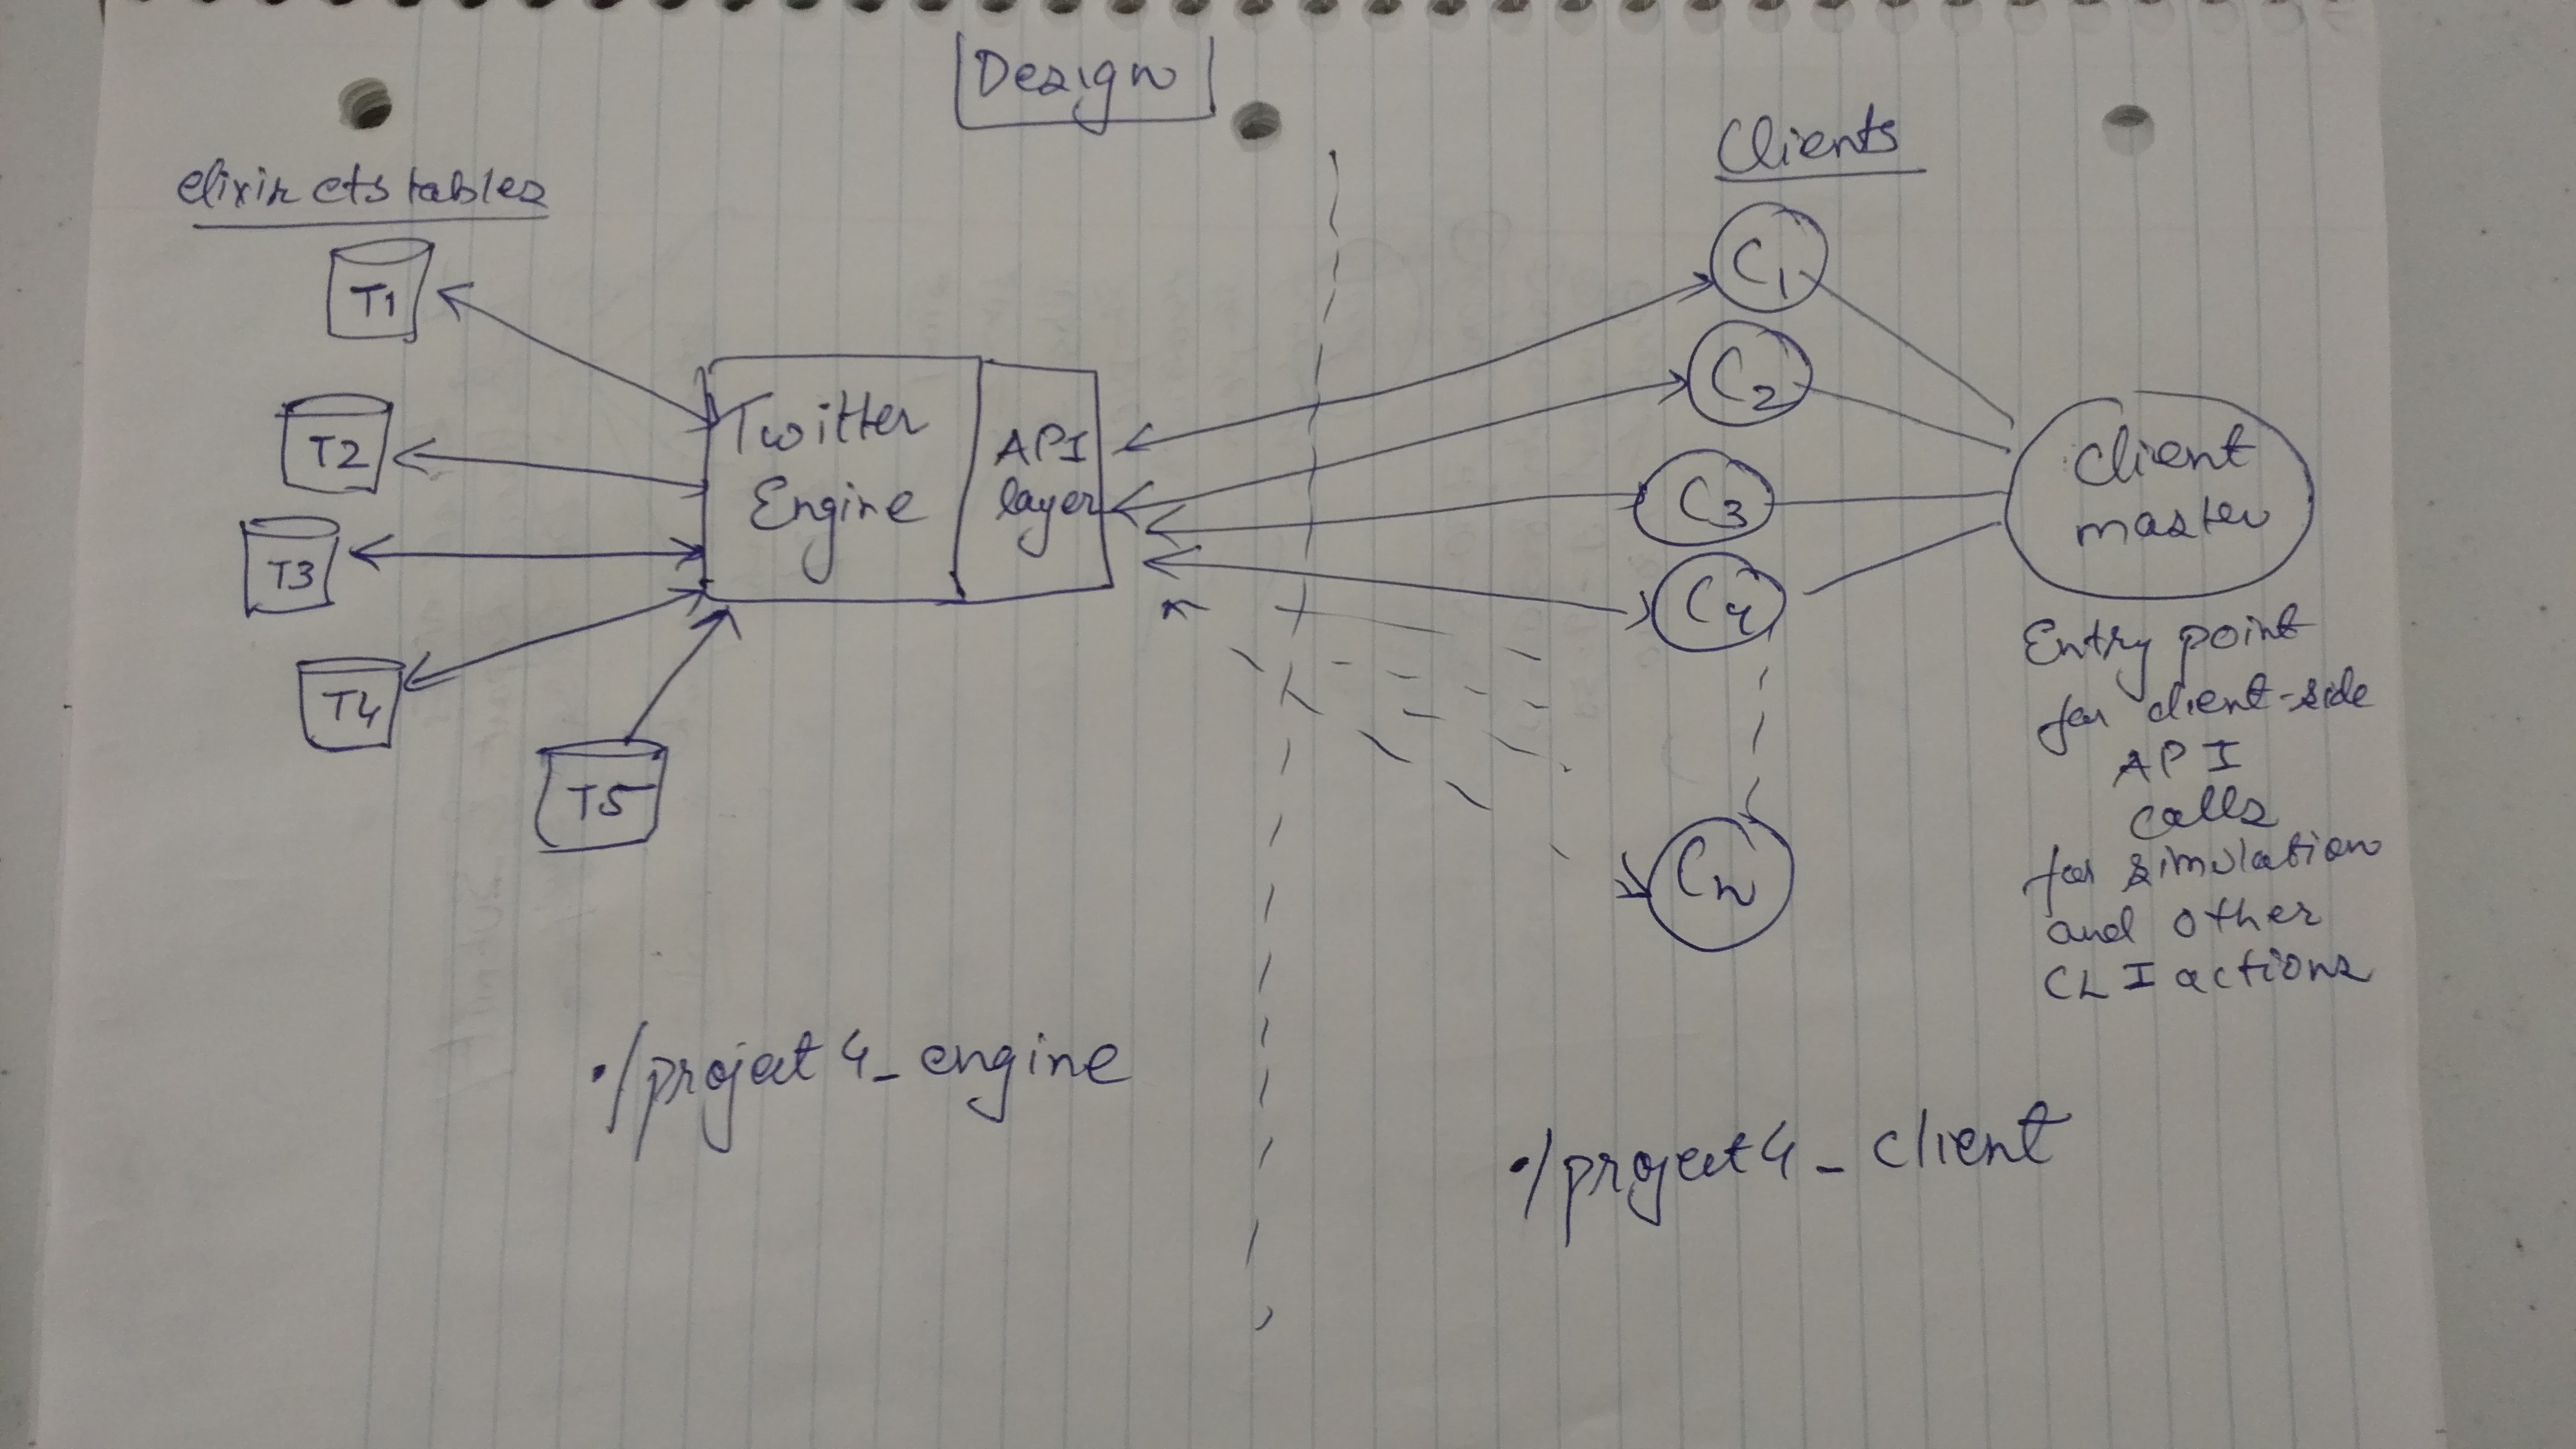 Design
elixir ets tables
T1
T2
T3
T4
T5
Twitter
Engine
API
layer
Clients
C1
C2
C3
C4
Cn
client
master
Entry point
for client-side
API
calls
for simulation
and other
CLI actions
./project4_engine
./project4_client